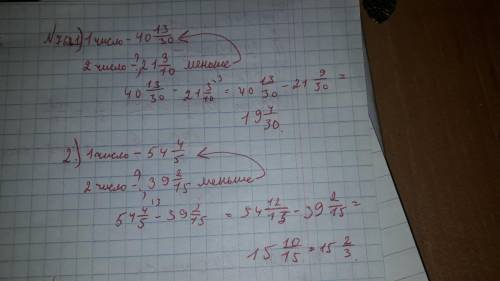 1) 1 число - 40 13/30
2 число - ?, 21 9/10 меньше
40 13/30 - 21 3/10 = 40 13/30 - 21 9/30 =
19 4/30.
2.) 1 число - 54 4/5
2 число - ?, 39 2/15 меньше
54 4/5 - 39 2/15 = 54 12/15 - 39 2/15 =
15 10/15 = 15 2/3.